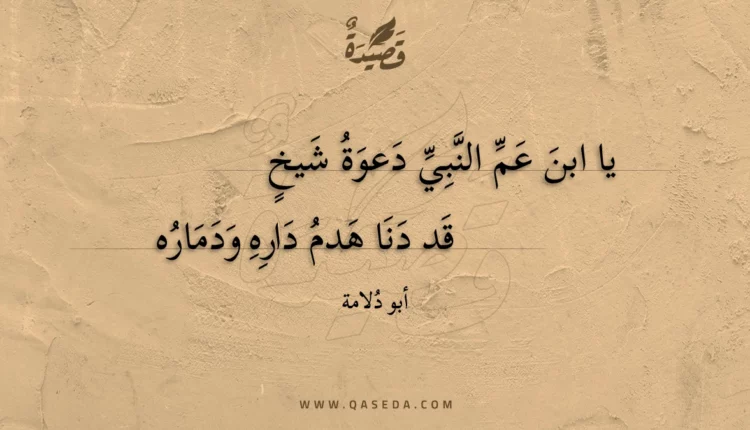 قَصِيْدَةٌ
يا ابنَ عَمِّ النَّبِيِّ دَعوَةُ شَيخٍ
قَد دَنَا هَدمُ دَارِهِ وَدَمَارُه
أبو دُلامة
WWW.QASEDA.COM